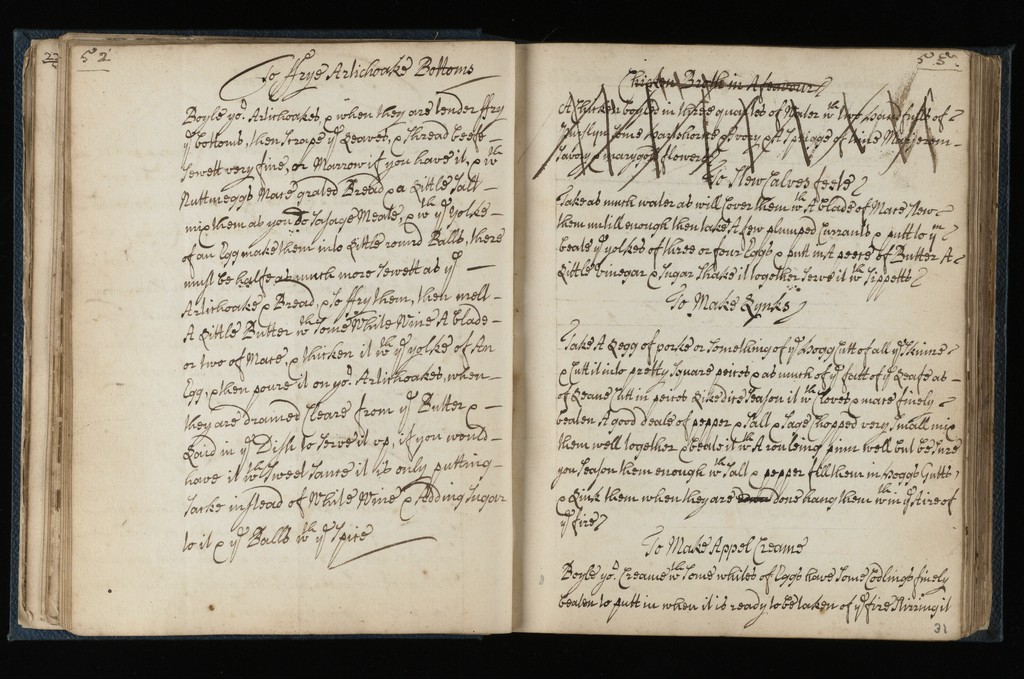 22
52
To ffrye Artichoake Bottoms
Boyle yor. Artichoakes, & when they are tender ffry
ye bottoms, then scrape ye Leaves, & Shread beefe
Sewett very fine, or Marrow if you have it, & wth
Nuttmeggs Mace grated Bread & a Little Salt
mix them as you do Sasage Meate, & wth ye yolke
of an Egg make them into Little round Balls, there
must be halfe as much more Sewett as ye
Artichoake & Bread, & So ffry them, then melt
A Little Butter wth some White Wine A blade
or two of Mace, & thicken it wth ye yolke of An
Egg, & then poure it on yor. Artichoakes, when
they are drained Cleare from ye Butter &
Laid in ye Dish to Serve it up, if you would
have it wth Sweet Sauce it is only putting
Sacke instead of White Wine & Adding Sugar
to it & ye Balls wth ye Spice
53
Chicken Broth in A feavour
A Chicken boyled in three quartes of Water wth two handfulls of
Purslyn some Harts horne & Ivory & A Sprigge of time Marjerom
Savory & marygold flowers
To Stew Calves feete
Take as much water as will Cover them wth A blade of Mace Stew
them untill enough then take A few plumped Currants & putt to ym
beate ye yolkes of three or four Eggs & putt in A peece of Butter A
Little Vinegar & Sugar Shake it together Serve it wth Sippetts
To Make Lynks
Take A Legg of porke or Something of ye Hogg Cutt of all ye Skinne
& Cutt it into pretty Square peices & as much of ye fatt of ye Leafe as
of Leane Cutt in peices Likewise Season it wth Cloves & mace finely
beaten A good deale of pepper & Salt & Sage Chopped very Small mix
them well together & beate it wth A rouleing pinn well but be Sure
you Season them enough wth Salt & pepper fill them in Hoggs Gutts
& Link them when they are done hang them wthin ye Aire of
ye fire
To Make Appel Creame
Boyle yor. Creame wth Some whites of Eggs have Some Codlings finely
beaten to putt in when it is ready to be taken of ye fire Stirring it
31